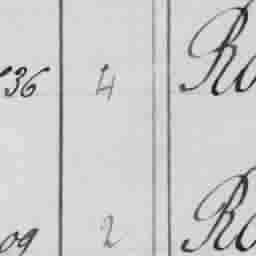 36 4 Ro
09 2 Ro